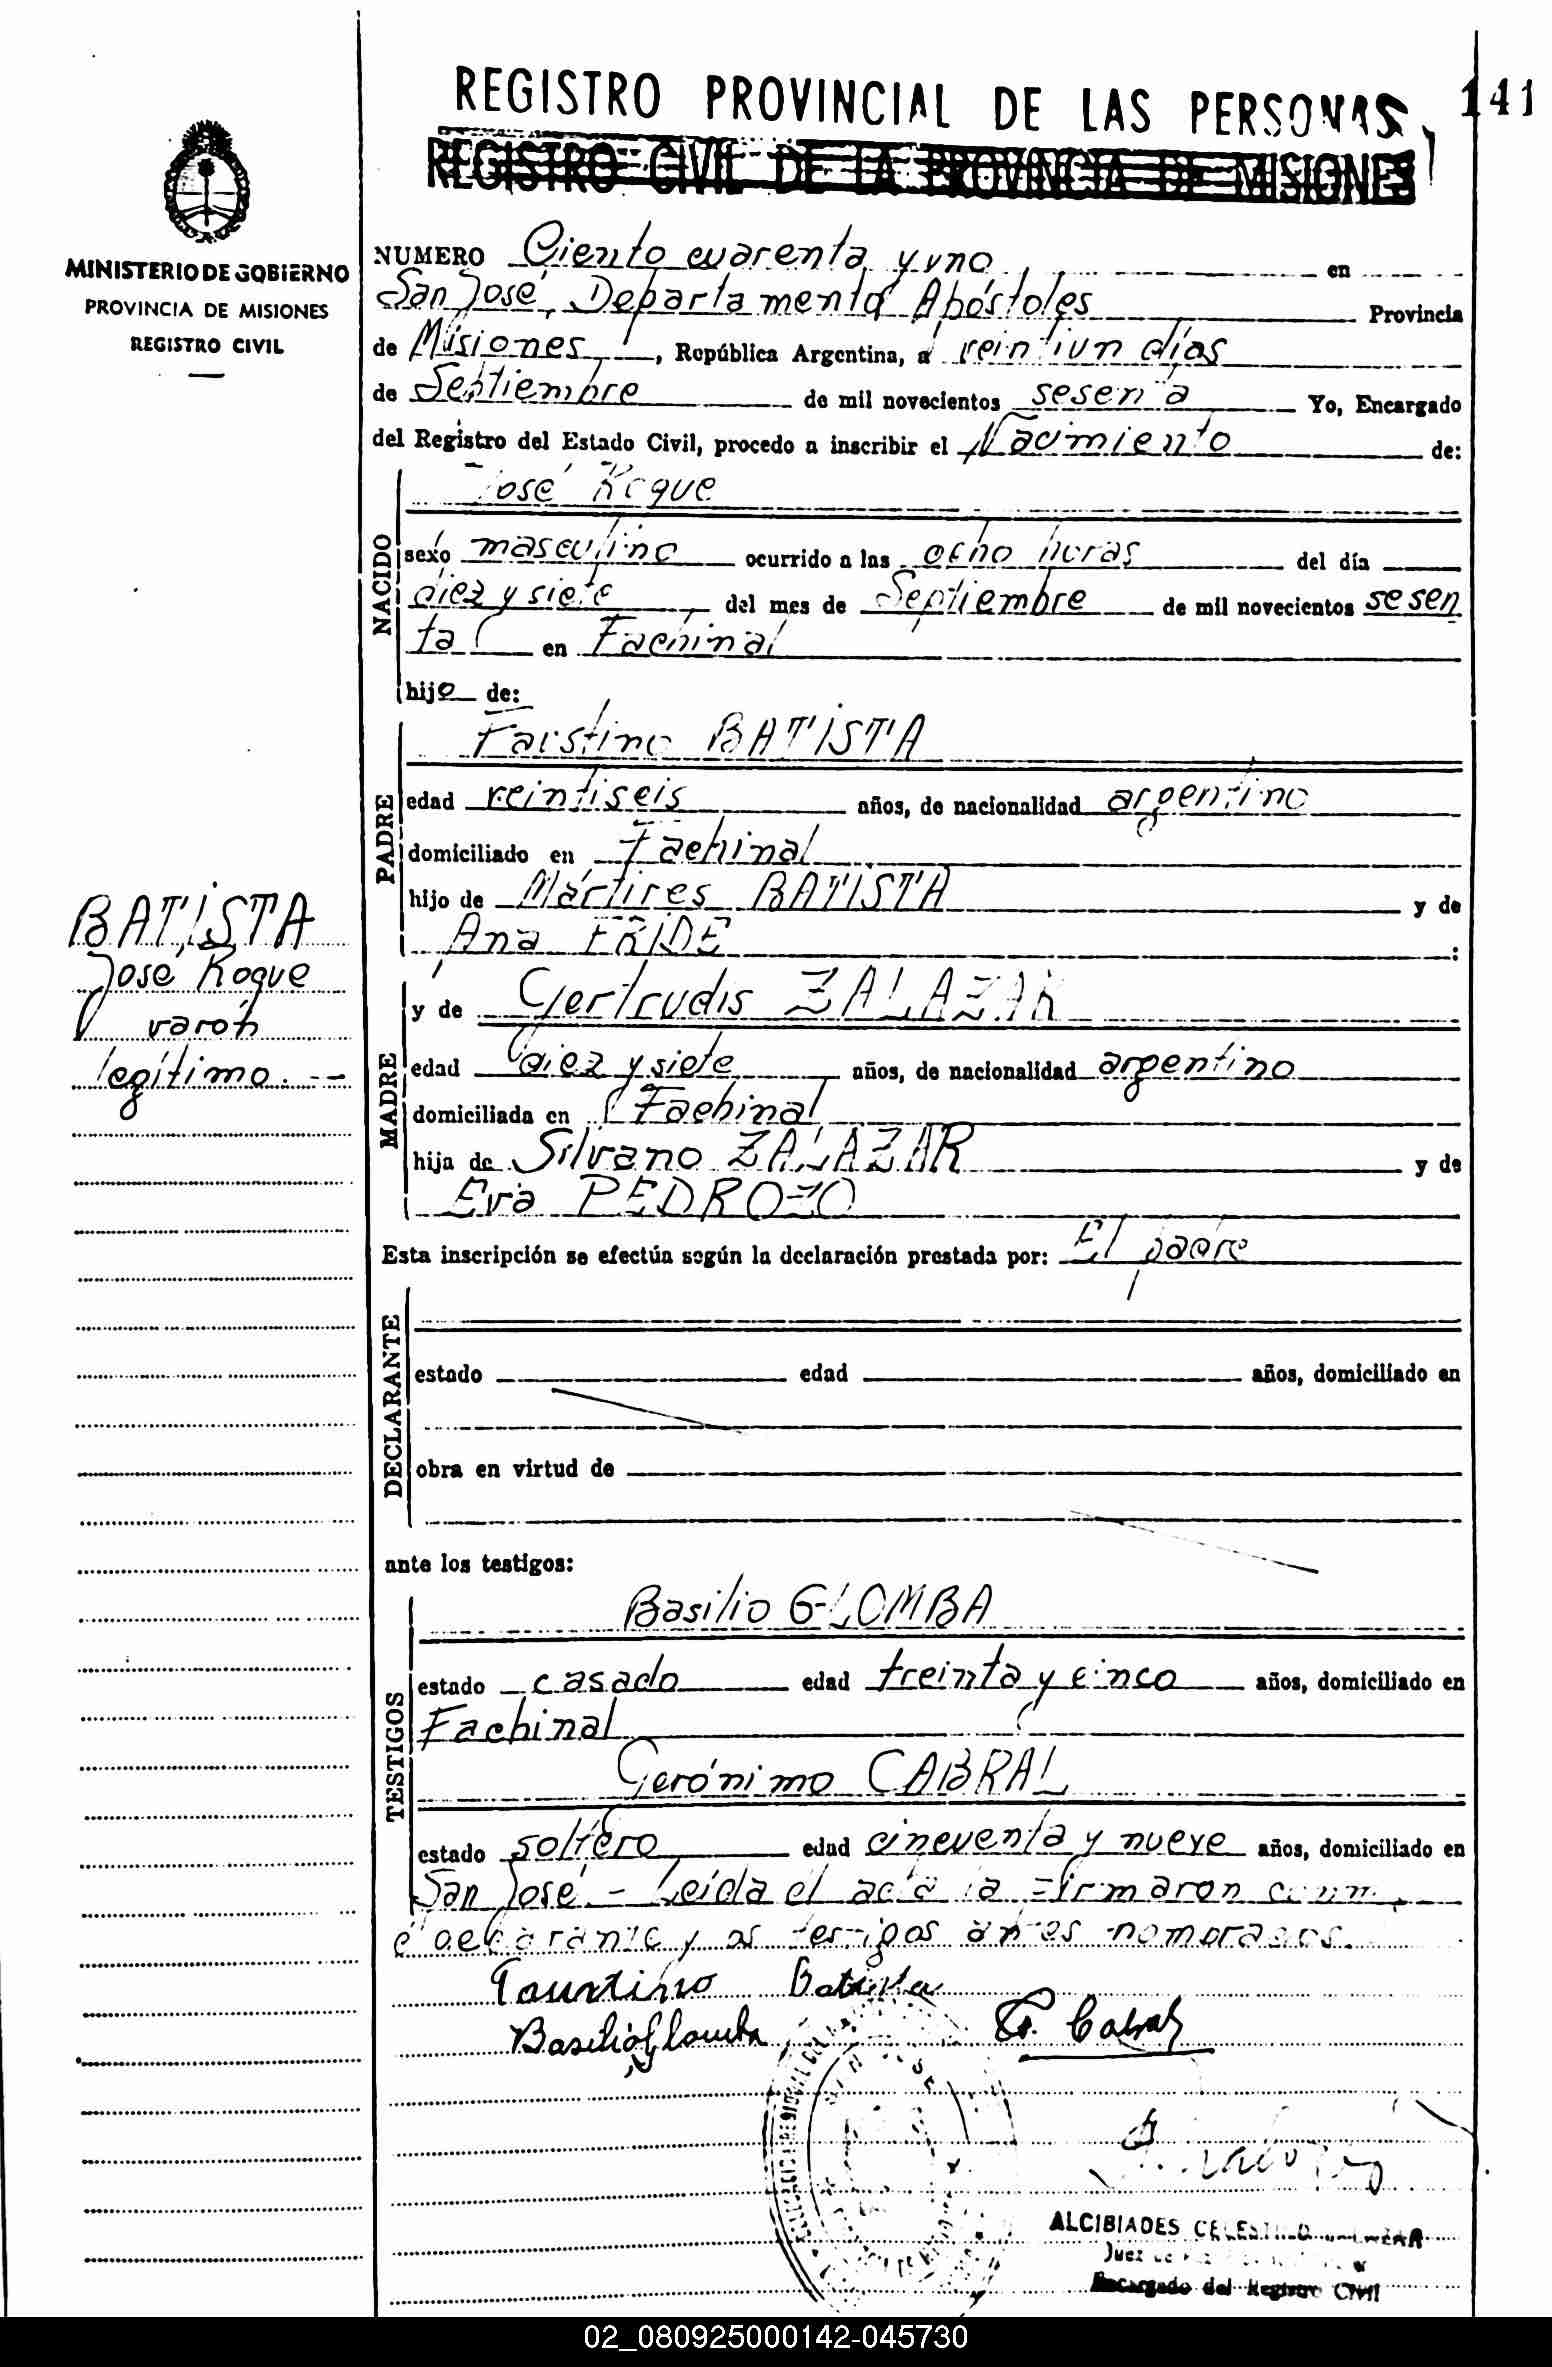 REGISTRO PROVINCIAL DE LAS PERSONAS
141
REGISTRO CIVIL DE LA PROVINCIA DE MISIONES
MINISTERIO DE GOBIERNO
PROVINCIA DE MISIONES
REGISTRO CIVIL
NUMERO Ciento cuarenta y uno en
San José, Departamento Apóstoles Provincia
de Misiones, República Argentina, a veintiun días
de Septiembre de mil novecientos sesenta Yo, Encargado
del Registro del Estado Civil, procedo a inscribir el Nacimiento de:
NACIDO
José Roque
sexo masculino ocurrido a las ocho horas del día
diez y siete del mes de Septiembre de mil novecientos sesen
ta en Fachinal
hijo de:
PADRE
Faustino BATISTA
edad veintiseis años, de nacionalidad argentino
domiciliado en Fachinal
hijo de Mártires BATISTA y de
Ana FRIDE :
BATISTA
José Roque
varón
legítimo. --
MADRE
y de Gertrudis ZALAZAR
edad diez y siete años, de nacionalidad argentino
domiciliada en Fachinal
hija de Silvano ZALAZAR y de
Eva PEDROZO
Esta inscripción se efectúa según la declaración prestada por: El padre
DECLARANTE
estado edad años, domiciliado en
obra en virtud de
ante los testigos:
TESTIGOS
Basilio GLOMBA
estado casado edad treinta y cinco años, domiciliado en
Fachinal
Gerónimo CABRAL
estado soltero edad cincuenta y nueve años, domiciliado en
San José - Leída el acta la firmaron
el declarante y los testigos antes nombrados.
Faustino Batista
Basilio Glomba G. Cabral
ALCIBIADES CELESTINO
Juez de
Encargado del Registro Civil
02_080925000142-045730